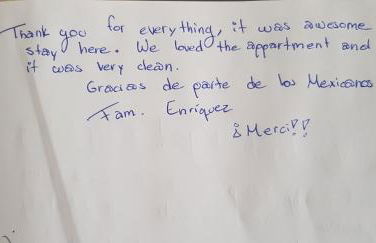 Thank you for everything, it was awesome
stay here. We loved the appartment and
it was very clean.
Gracias de parte de los Mexicanos
Fam. Enriquez
¡Merci!!